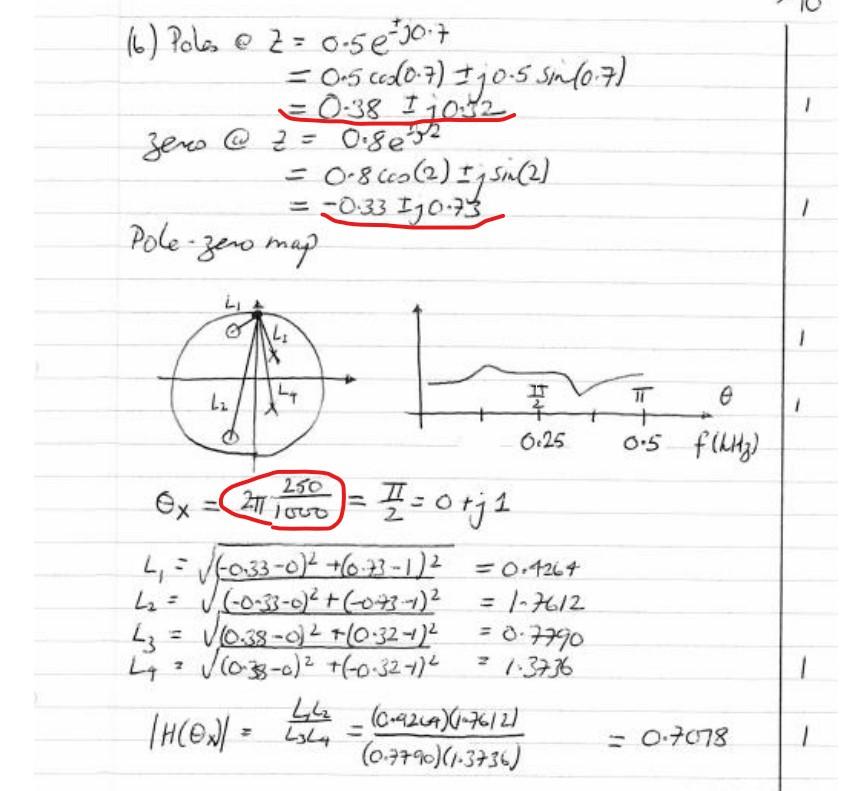 10
(b) Poles @ Z = 0.5e^±j0.7
= 0.5 cos(0.7) ± j0.5 sin(0.7)
= 0.38 ± j0.32 1
zero @ z = 0.8e^±j2
= 0.8 cos(2) ± j sin(2)
= -0.33 ± j0.73 1
Pole-zero map
L₁
L₂
L₁ 1
L₄
π/2 π θ 1
0.25 0.5 f(kHz)
θx = 2π 250/1000 = π/2 = 0 + j1
L₁ = √(-0.33-0)² + (0.73-1)² = 0.4264
L₂ = √(-0.33-0)² + (-0.73-1)² = 1.7612
L₃ = √(0.38-0)² + (0.32-1)² = 0.7790
L₄ = √(0.38-0)² + (-0.32-1)² = 1.3736 1
|H(θx)| = L₁L₂/L₃L₄ = (0.4264)(1.7612)/(0.7790)(1.3736) = 0.7078 1